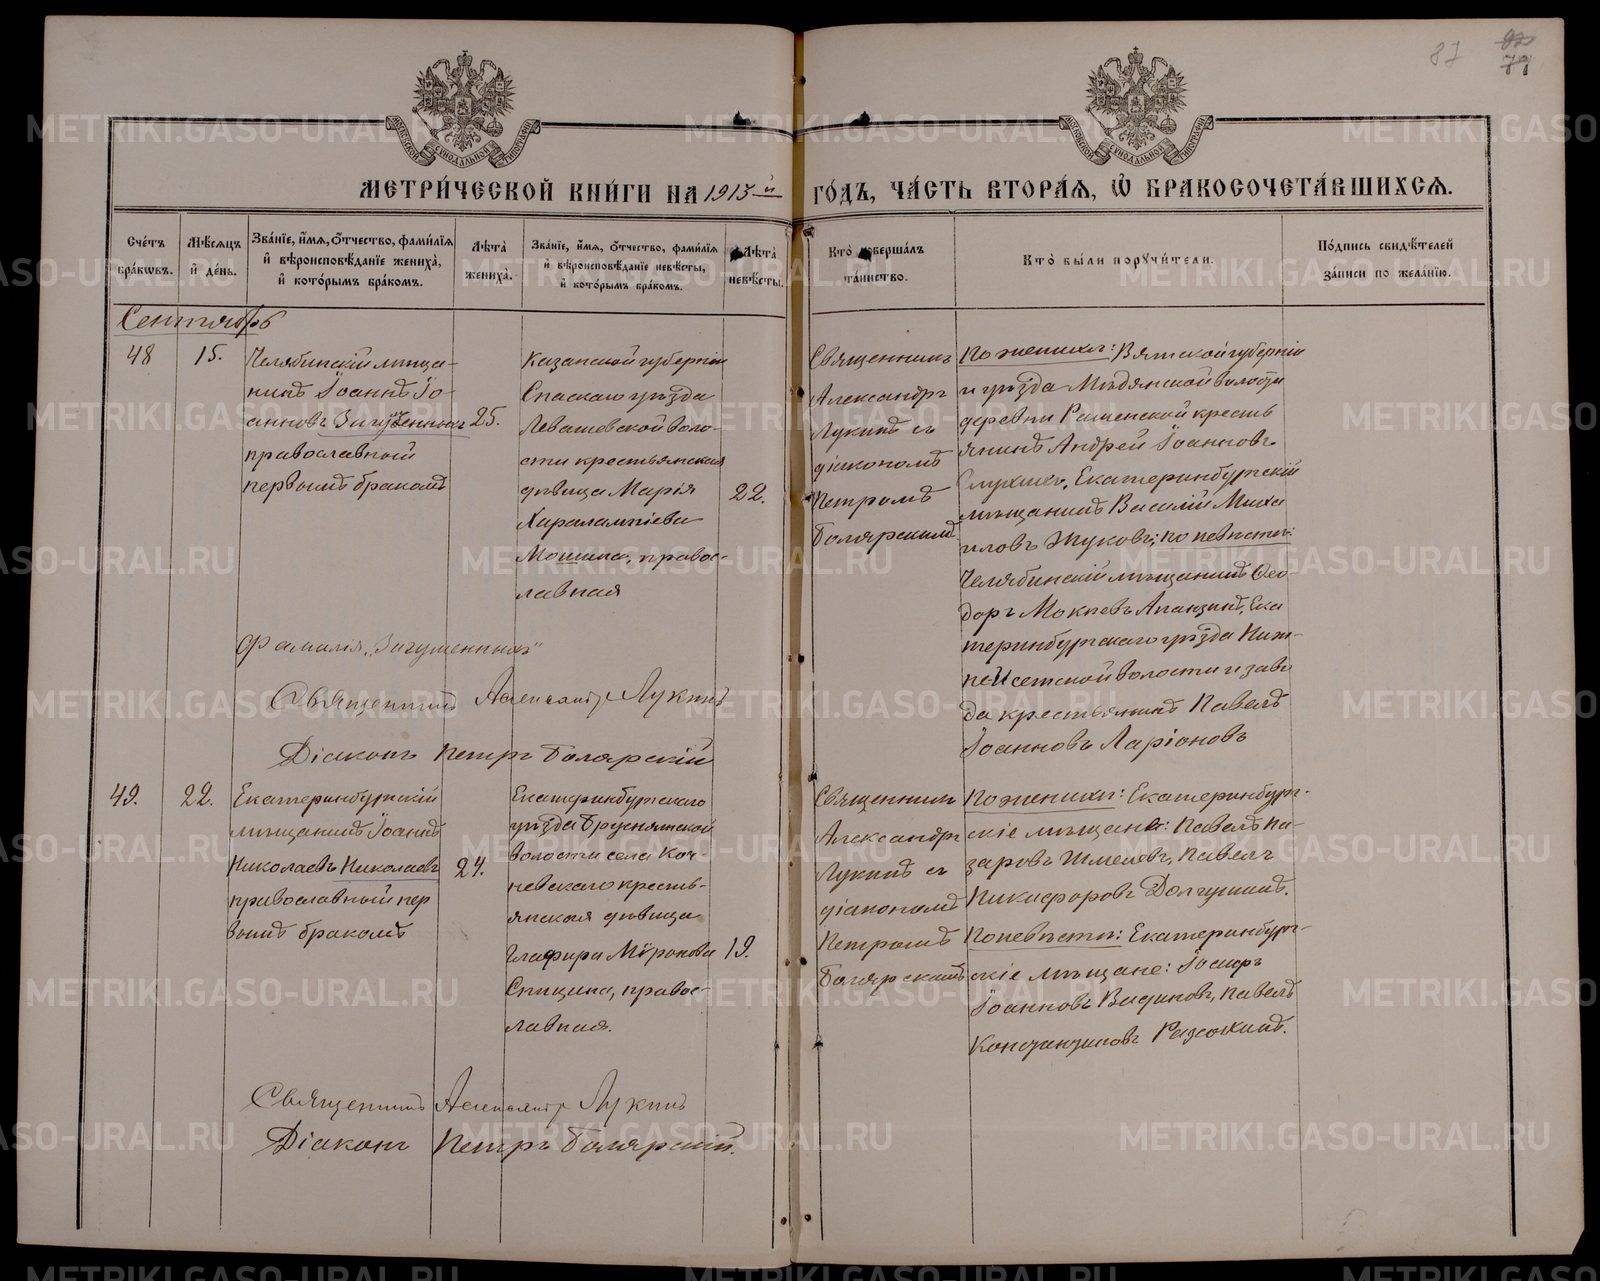 87
МОСКОВСКОЙ СѴНОДАЛЬНОЙ ТИПОГРАФІИ
МОСКОВСКОЙ СѴНОДАЛЬНОЙ ТИПОГРАФІИ
МЕТРИ́ЧЕСКОЙ КНИ́ГИ НА 1913-й ГО́ДЪ, ЧА́СТЬ ВТОРА́Я, Ѽ БРАКОСОЧЕТА́ВШИХСЯ.
Сче́тъ бра́кѡвъ.
Мѣ́сяцъ и҆ де́нь.
Зва́нїе, и҆́мя, ѻ҆́тчество, фами́лїя и҆ вѣроисповѣ́данїе жениха̀, и҆ кото́рымъ бра́комъ.
Лѣ́та жениха̀.
Зва́нїе, и҆́мя, ѻ҆́тчество, фами́лїя и҆ вѣроисповѣ́данїе невѣ́сты, и҆ кото́рымъ бра́комъ.
Лѣ́та невѣ́сты.
Кто̀ соверша́лъ та́инство.
Кто̀ бы́ли поручи́тели.
По́дпись свидѣ́телей за́писи по жела́нїю.
Сентябрь
48
15.
Челябинскій мѣща-
нинъ Іоаннъ Іо-
анновъ
православный
первымъ бракомъ
25.
Казанской губерніи
Спаскаго уѣзда
Левашевской воло-
сти крестьянская
дѣвица Марія
Харалампіева
Мошина, правос-
лавная
22.
Священникъ
Александръ
Лукинъ съ
діакономъ
Петромъ
Болярскимъ
По женихѣ: Вятской губерніи
и уѣзда Мѣдянской волости
деревни крестья
янинъ Андрей Іоанновъ
Екатеринбургскій
мѣщанинъ Василій Миха
иловъ Жуковъ; по невѣстѣ:
Челябинскій мѣщанинъ Ѳео-
доръ Мокіевъ Апанзинъ, Ека
теринбургскаго уѣзда Ниж-
неисетской волости и заво
да крестьянинъ Павелъ
Іоанновъ Ларіоновъ
Фамилія „Загуменныхъ"
Священникъ Александръ Лукинъ
Діаконъ Петръ Болярскій
49.
22.
Екатеринбургскій
мѣщанинъ Іоаннъ
Николаевъ Николаевъ
православный пер
вымъ бракомъ
24.
Екатеринбургскаго
уѣзда Бруснятской
волости села Коч-
невскаго кресть-
янская дѣвица
Глафира Мѵронова
Спицина, правос-
лавная.
19.
Священникъ
Александръ
Лукинъ съ
діакономъ
Петромъ
Болярскимъ
По женихѣ: Екатеринбург-
скіе мѣщане: Павелъ На-
заровъ Шмелевъ, Павелъ
Никифоровъ Долгушинъ.
По невѣстѣ: Екатеринбург-
скіе мѣщане: Іосифъ
Іоанновъ Вадиновъ, Павелъ
Константиновъ
Священникъ Александръ Лукинъ
Діаконъ Петръ Болярскій.
METRIKI.GASO-URAL.RU